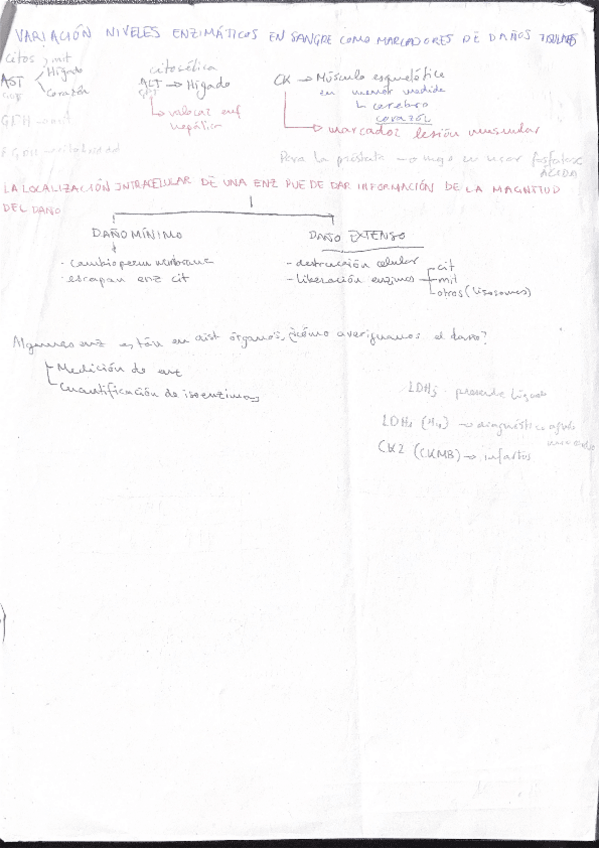 VARIACIÓN NIVELES ENZIMÁTICOS EN SANGRE COMO MARCADORES DE DAÑOS TISULARES
citos y mit
AST → Hígado
Corazón
citosólica
ALT → Hígado
GPT
↳ valorar enf
hepática
CK → Músculo esquelético
en menor medida
↳ cerebro
corazón
→ marcador lesión muscular
GDH → mit
Para la próstata → mejor usar fosfatasa
ÁCIDA
LA LOCALIZACIÓN INTRACELULAR DE UNA ENZ PUEDE DAR INFORMACIÓN DE LA MAGNITUD
DEL DAÑO
DAÑO MÍNIMO
- cambio perm membrana
- escapan enz cit
DAÑO EXTENSO
- destrucción celular
- liberación enzimas
cit
mit
otros (lisosomas)
Algunas enz están en dist órganos, ¿cómo averiguamos el daño?
Medición de enz
Cuantificación de isoenzimas
LDH5 - procede hígado
LDH1 (H4) → diagnóstico
CK2 (CKMB) → infartos